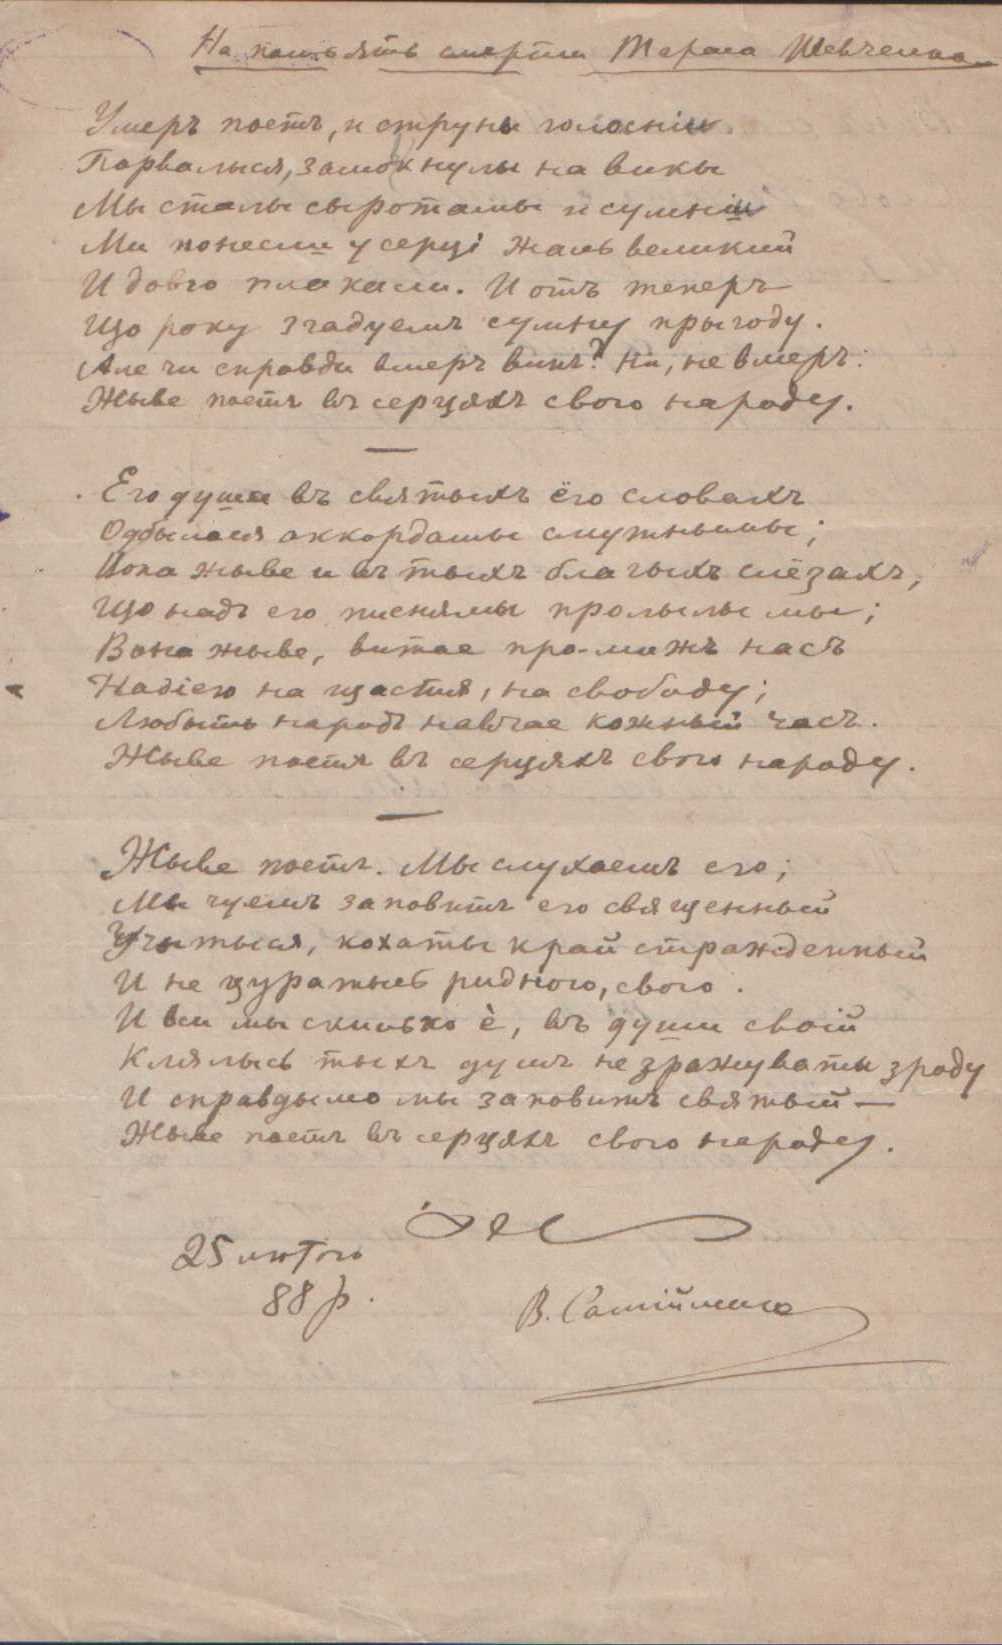 На память смерти Тараса Шевченка
Умеръ поетъ, и струны голоснiи
Порвалыся, замокнулы на викы
Мы сталы сыротамы и сумнiи
Ми понесли у серцi жаль великий
И довго плакали. И отъ теперъ
Що року згадуемъ сумну прыгоду.
Але чи справди вмеръ винъ? Ни, не вмеръ:
Жыве поетъ въ серцяхъ свого народу.
Его душа въ святыхъ ёго словахъ
Одбылася аккордамы смутнымы;
Вона жыве и въ тыхъ благыхъ слёзахъ,
Що надъ его писнямы пролылы мы;
Вона жыве, витае про-мижъ насъ
Надiею на щастя, на свободу;
Любыть народъ навчае кожный часъ.
Жыве поетъ въ серцяхъ свого народу.
Жыве поетъ. Мы слухаемъ его;
Мы чуемъ заповитъ его священный
Учитыся, кохаты край стражденный
И не цуратысь ридного, свого.
И вси мы скилько è, въ души своiй
Клялысь тыхъ думъ не зражуваты зроду
И справдымо мы заповитъ святый —
Жыве поетъ въ серцяхъ свого народу.
25 лютого
88 р.
В. Самiйленко